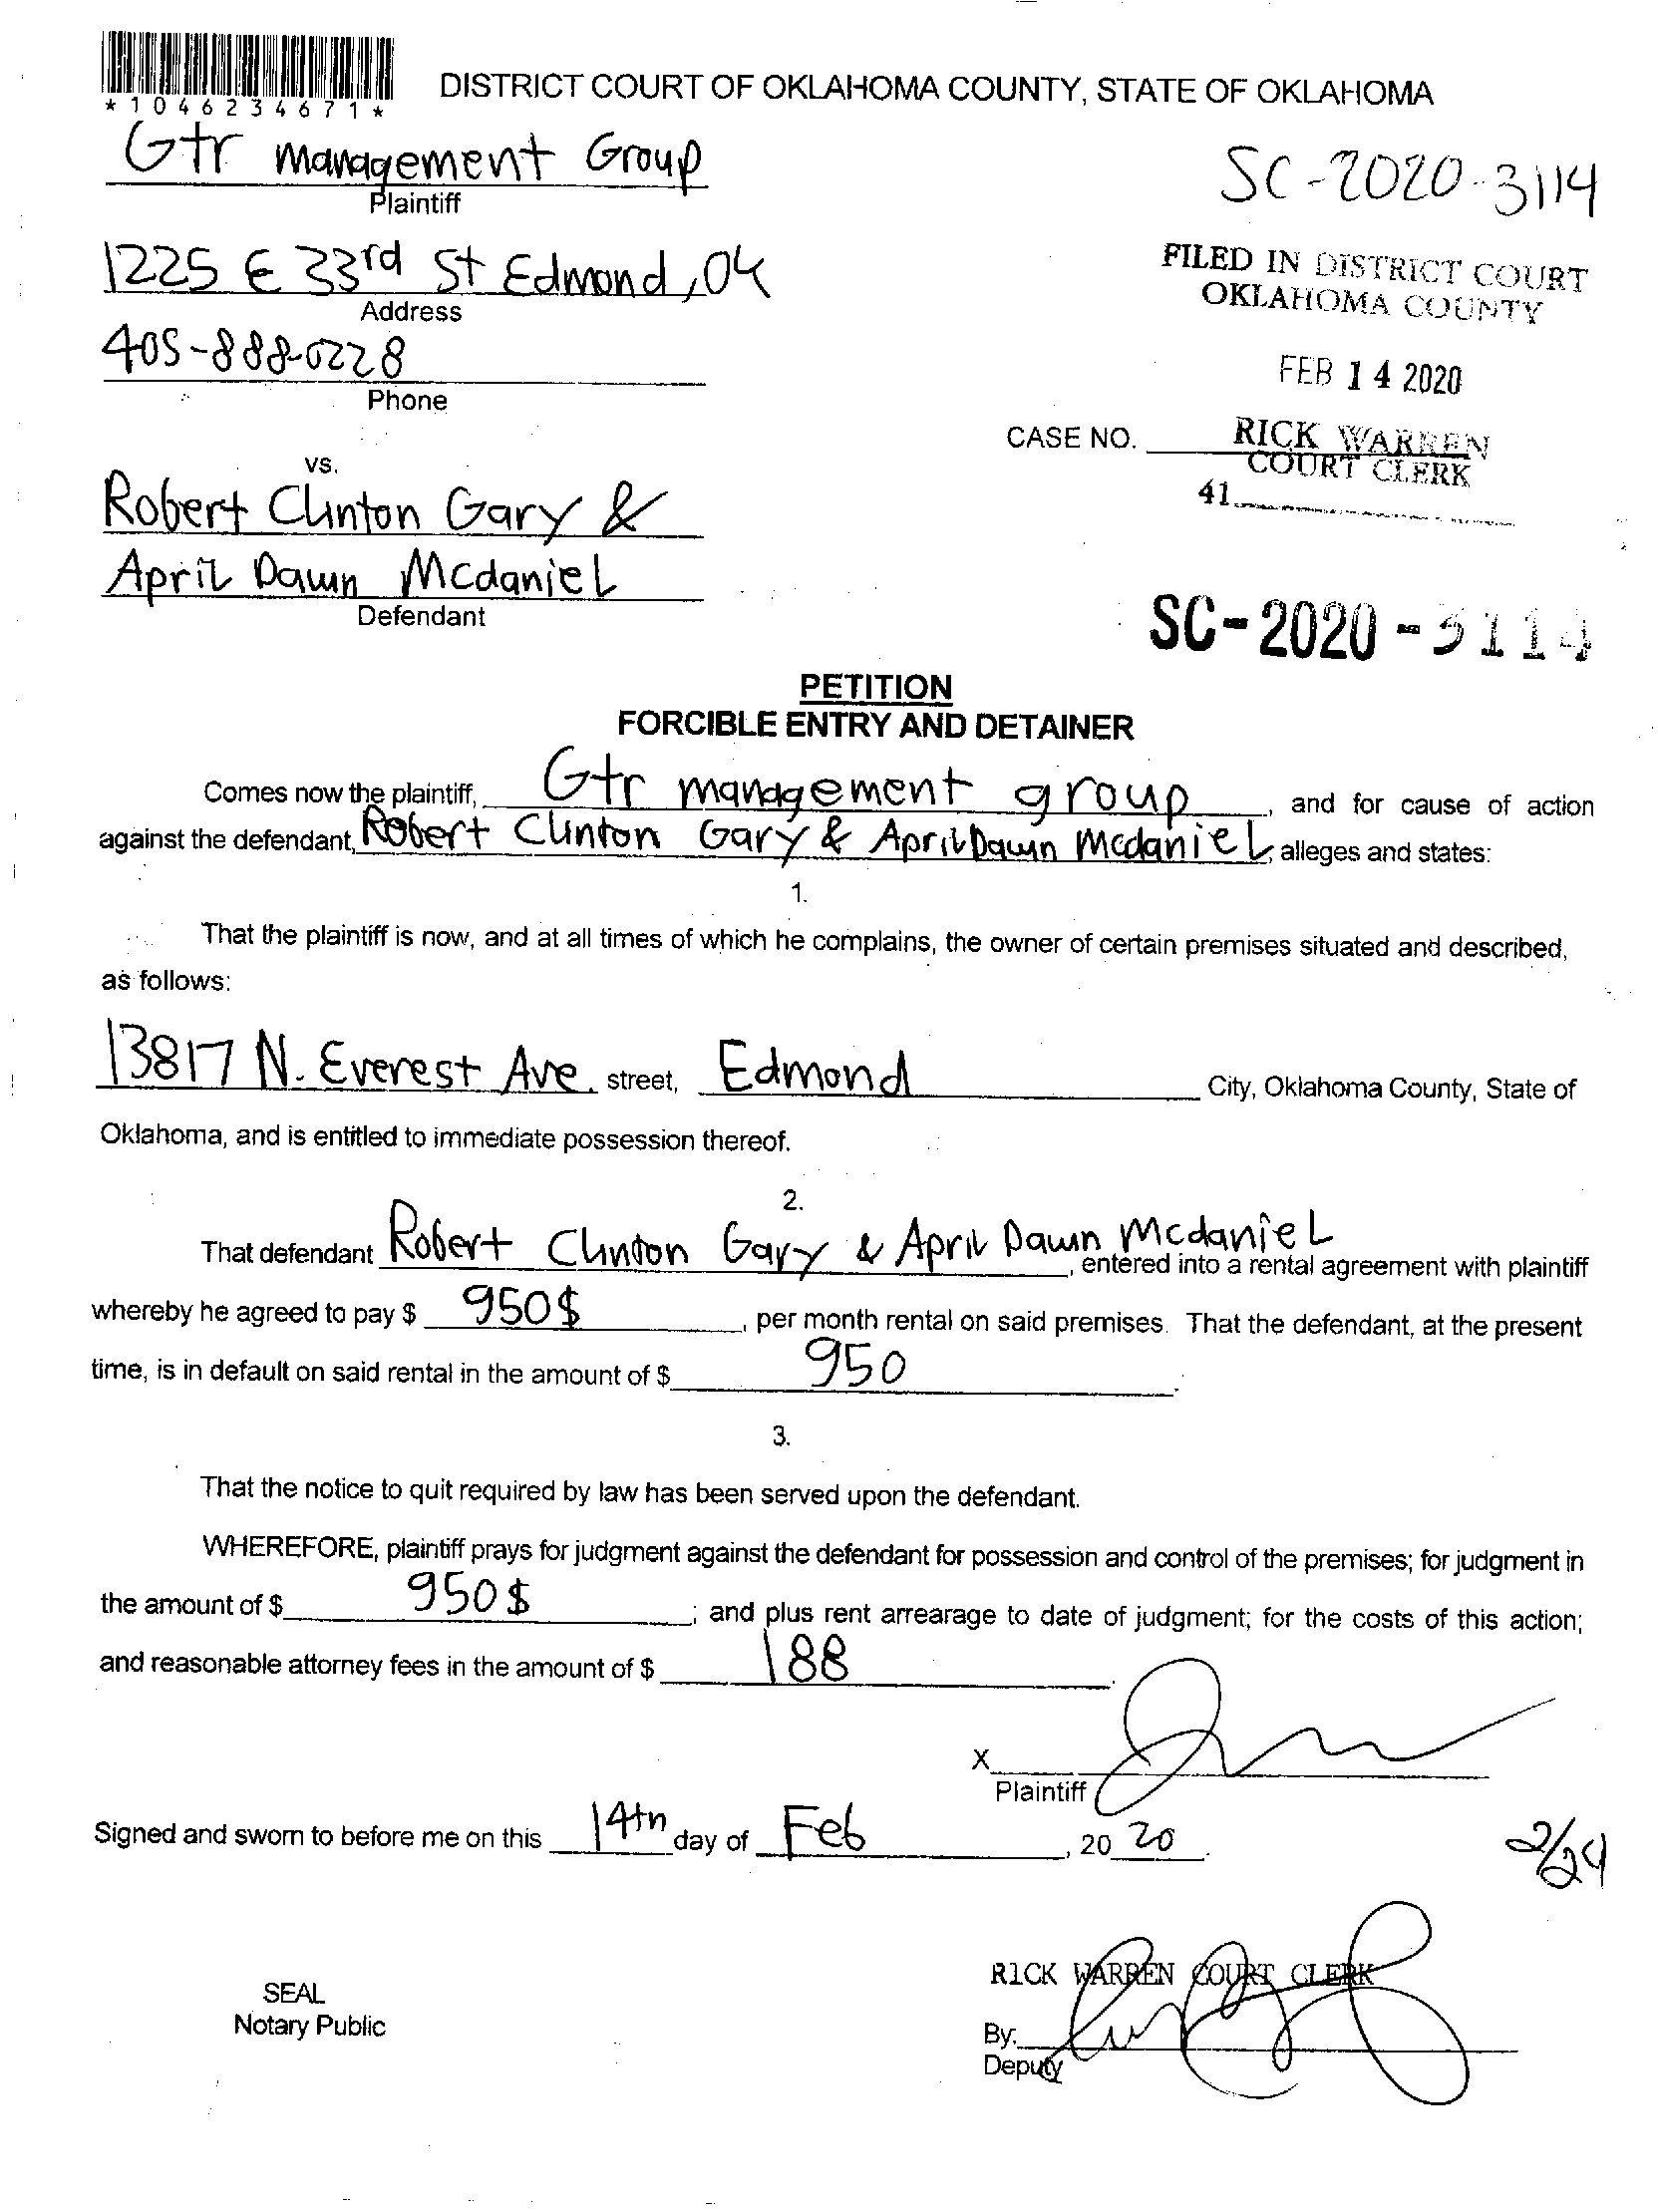 *1046234671*
DISTRICT COURT OF OKLAHOMA COUNTY, STATE OF OKLAHOMA
Gtr management Group
Plaintiff
SC-2020-3114
1225 E 33rd St Edmond, OK
Address
FILED IN DISTRICT COURT
OKLAHOMA COUNTY
405-888-0228
Phone
FEB 14 2020
CASE NO.
RICK WARREN
COURT CLERK
41
vs.
Robert Clinton Gary &
April Dawn Mcdaniel
Defendant
SC-2020-3114
PETITION
FORCIBLE ENTRY AND DETAINER
Comes now the plaintiff, Gtr management group, and for cause of action
against the defendant, Robert Clinton Gary & April Dawn Mcdaniel, alleges and states:
1.
That the plaintiff is now, and at all times of which he complains, the owner of certain premises situated and described,
as follows:
13817 N. Everest Ave. street, Edmond City, Oklahoma County, State of
Oklahoma, and is entitled to immediate possession thereof.
2.
That defendant Robert Clinton Gary & April Dawn Mcdaniel, entered into a rental agreement with plaintiff
whereby he agreed to pay $ 950$, per month rental on said premises. That the defendant, at the present
time, is in default on said rental in the amount of $ 950.
3.
That the notice to quit required by law has been served upon the defendant.
WHEREFORE, plaintiff prays for judgment against the defendant for possession and control of the premises; for judgment in
the amount of $ 950$; and plus rent arrearage to date of judgment; for the costs of this action;
and reasonable attorney fees in the amount of $ 188.
X
Plaintiff
Signed and sworn to before me on this 14th day of Feb, 20 20.
2/24
RICK WARREN COURT CLERK
SEAL
Notary Public
By:
Deputy